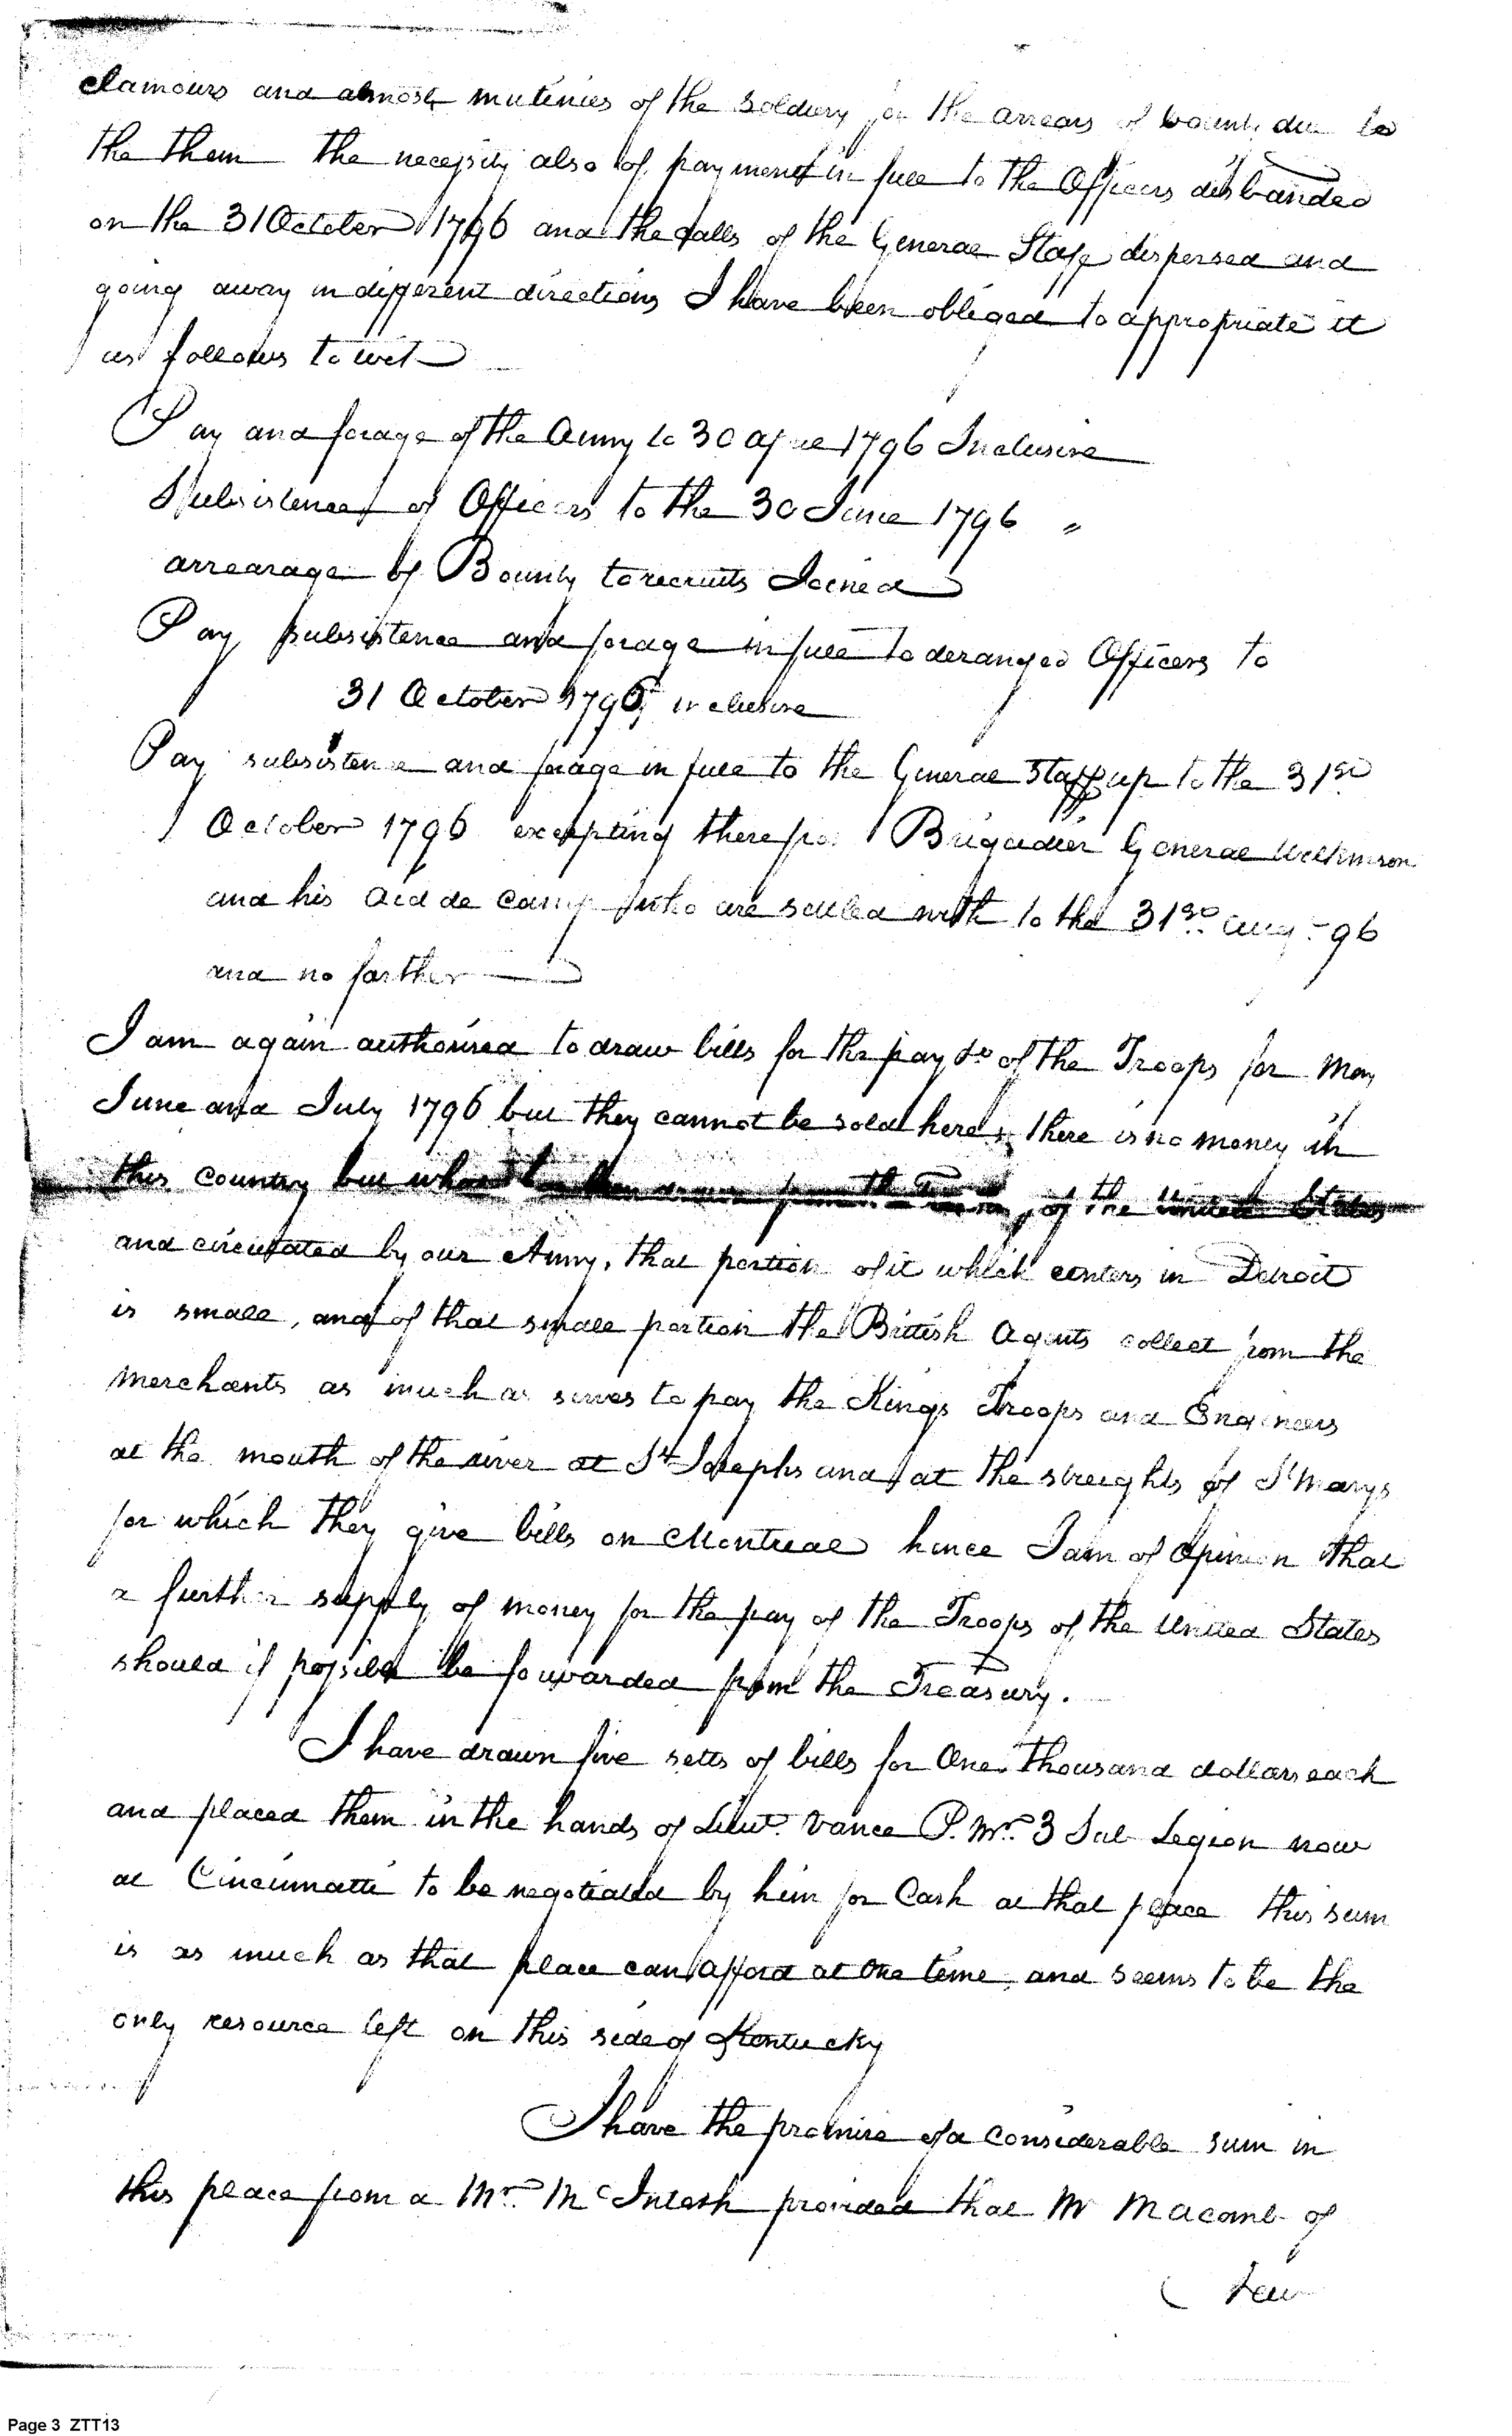 clamours and almost mutinies of the soldiery for the arrears of bounty due to
the them the necessity also of payment in full to the Officers disbanded
on the 31 October 1796 and the calls of the General Staff dispersed and
going away in different directions I have been obliged to appropriate it
as follows to wit
Pay and forage of the Army to 30 april 1796 Inclusive
Subsistence of Officers to the 30 June 1796 "
arrearage of Bounty to recruits Joined
Pay subsistence and forage in full to deranged Officers to
31 October 1796 inclusive
Pay subsistence and forage in full to the General Staff up to the 31st
October 1796 excepting therefrom Brigadier General Wilkinson
and his aid de camp who are settled with to the 31st Augt 96
and no farther
I am again authorised to draw bills for the pay &c of the Troops for May
June and July 1796 but they cannot be sold here, there is no money in
this country but what has been drawn from the Treasury of the United States
and circulated by our Army, that portion of it which centers in Detroit
is small, and of that small portion the British Agents collect from the
Merchants as much as serves to pay the Kings Troops and Engineers
at the mouth of the river at St Josephs and at the streights of St Marys
for which they give bills on Montreal hence I am of Opinion that
a further supply of money for the pay of the Troops of the United States
should if possible be forwarded from the Treasury.
I have drawn five setts of bills for One Thousand dollars each
and placed them in the hands of Lieut. Vance P. Mr. 3 Sub Legion now
at Cincinnatti to be negotiated by him for Cash at that place this sum
is as much as that place can afford at one time, and seems to be the
only resource left on this side of Kentucky
I have the promise of a considerable sum in
this place from a Mr. McIntosh provided that Mr Macomb of
New
Page 3 ZTT13